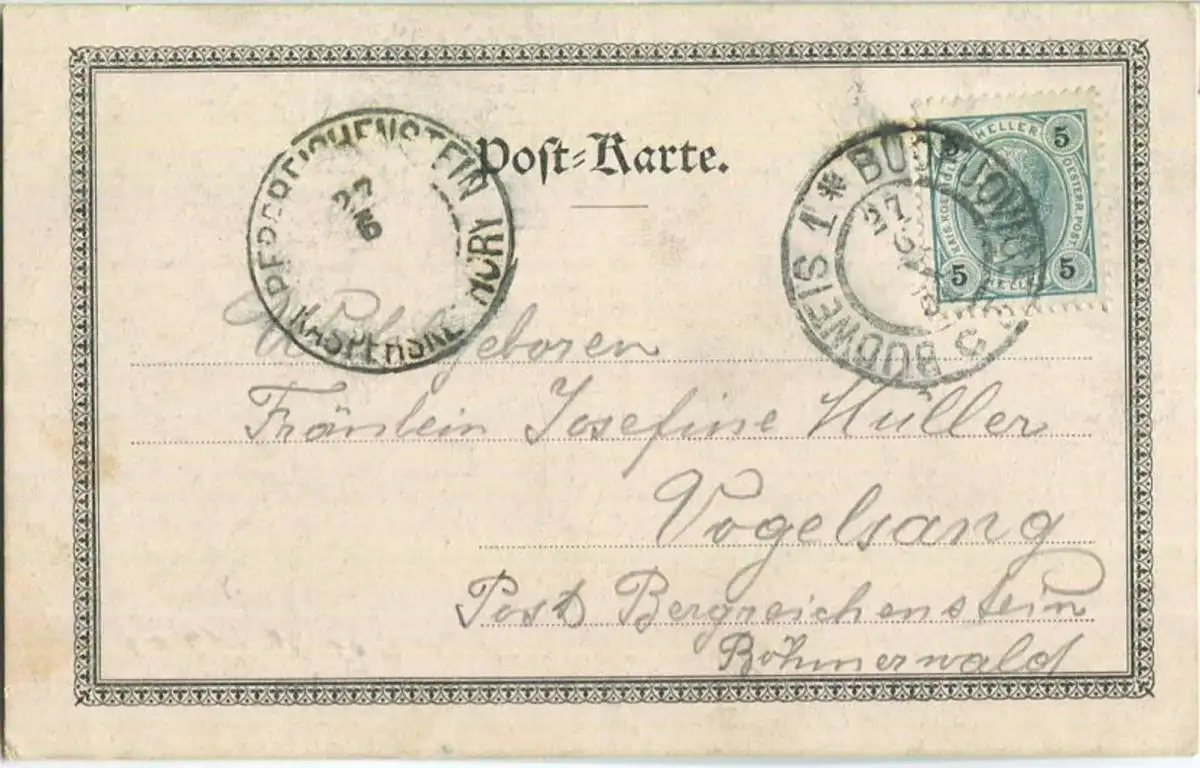 Post-Karte.
UNTERREICHENSTEIN
27
6
KAŠPERSKÉ HORY
* BUDĚJOVICE
27
6
BUDWEIS 1
HELLER
5
OESTERR. POST
5 5
Wohlgeboren
Fräulein Josefine Müller
Vogelsang
Post Bergreichenstein
Böhmerwald